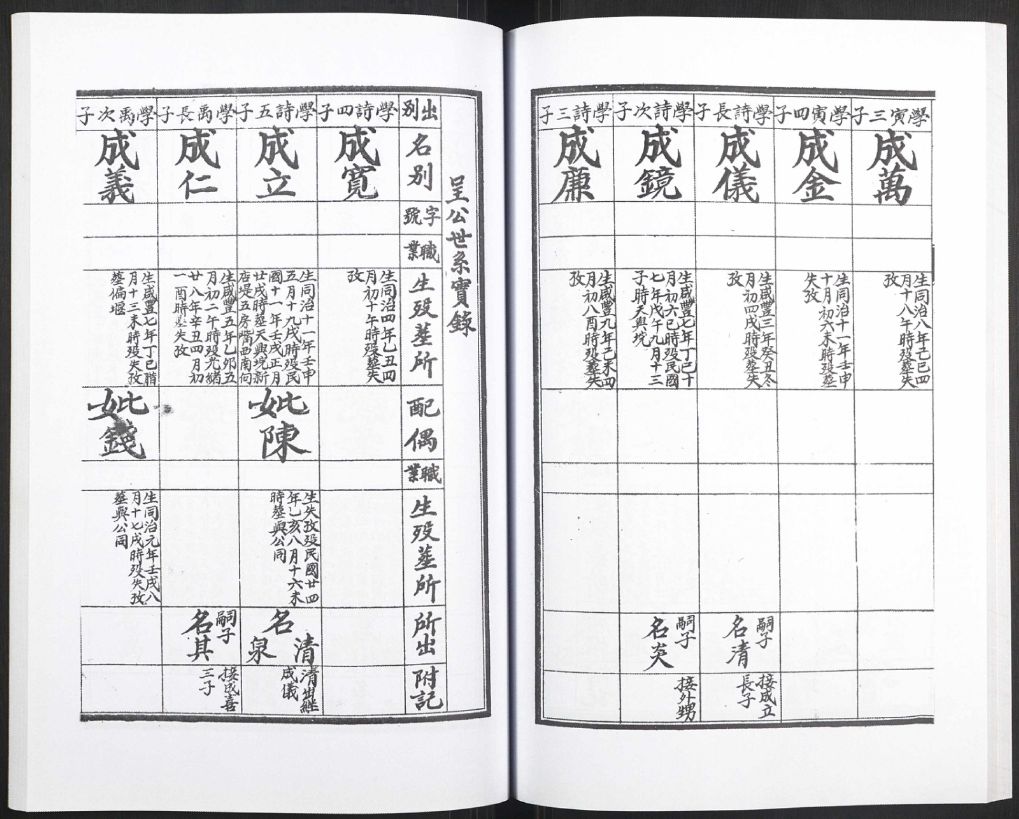 學寅三子
成萬
生同治八年己巳四
月十八午時歿塟失
攷
學寅四子
成金
生同治十一年壬申
十月初六未時歿塟
失攷
學詩長子
成儀
生咸豐三年癸丑冬
月初四戌時歿塟失
攷
嗣子
名清
接成立
長子
學詩次子
成鏡
生咸豐七年丁巳十
月初六巳時歿民國
七年戊午九月十三
子時天興垸
嗣子
名炎
接外甥
學詩三子
成廉
生咸豐九年己未四
月初八酉時歿塟失
攷
呈公世系實錄
出別
名別
字號
職業
生歿塟所
配偶
職業
生歿塟所
所出
附記
學詩四子
成寬
生同治四年乙丑四
月初十午時歿塟失
攷
學詩五子
成立
生同治十一年壬申
五月十九戌時歿民
國十一年壬戌正月
廿戌時塟天興垸新
店堤五房嘴西南向
妣陳
生失攷歿民國廿四
年乙亥八月十六未
時塟與公同
名清
泉
清出繼
成儀
學禹長子
成仁
生咸豐五年乙卯五
月初二午時歿光緒
廿八年辛丑四月初
一酉時塟失攷
嗣子
名其
接成喜
三子
學禹次子
成義
生咸豐七年丁巳腊
月十三未時歿失攷
塟偏堰
妣錢
生同治元年壬戌八
月十七戌時歿失攷
塟與公同